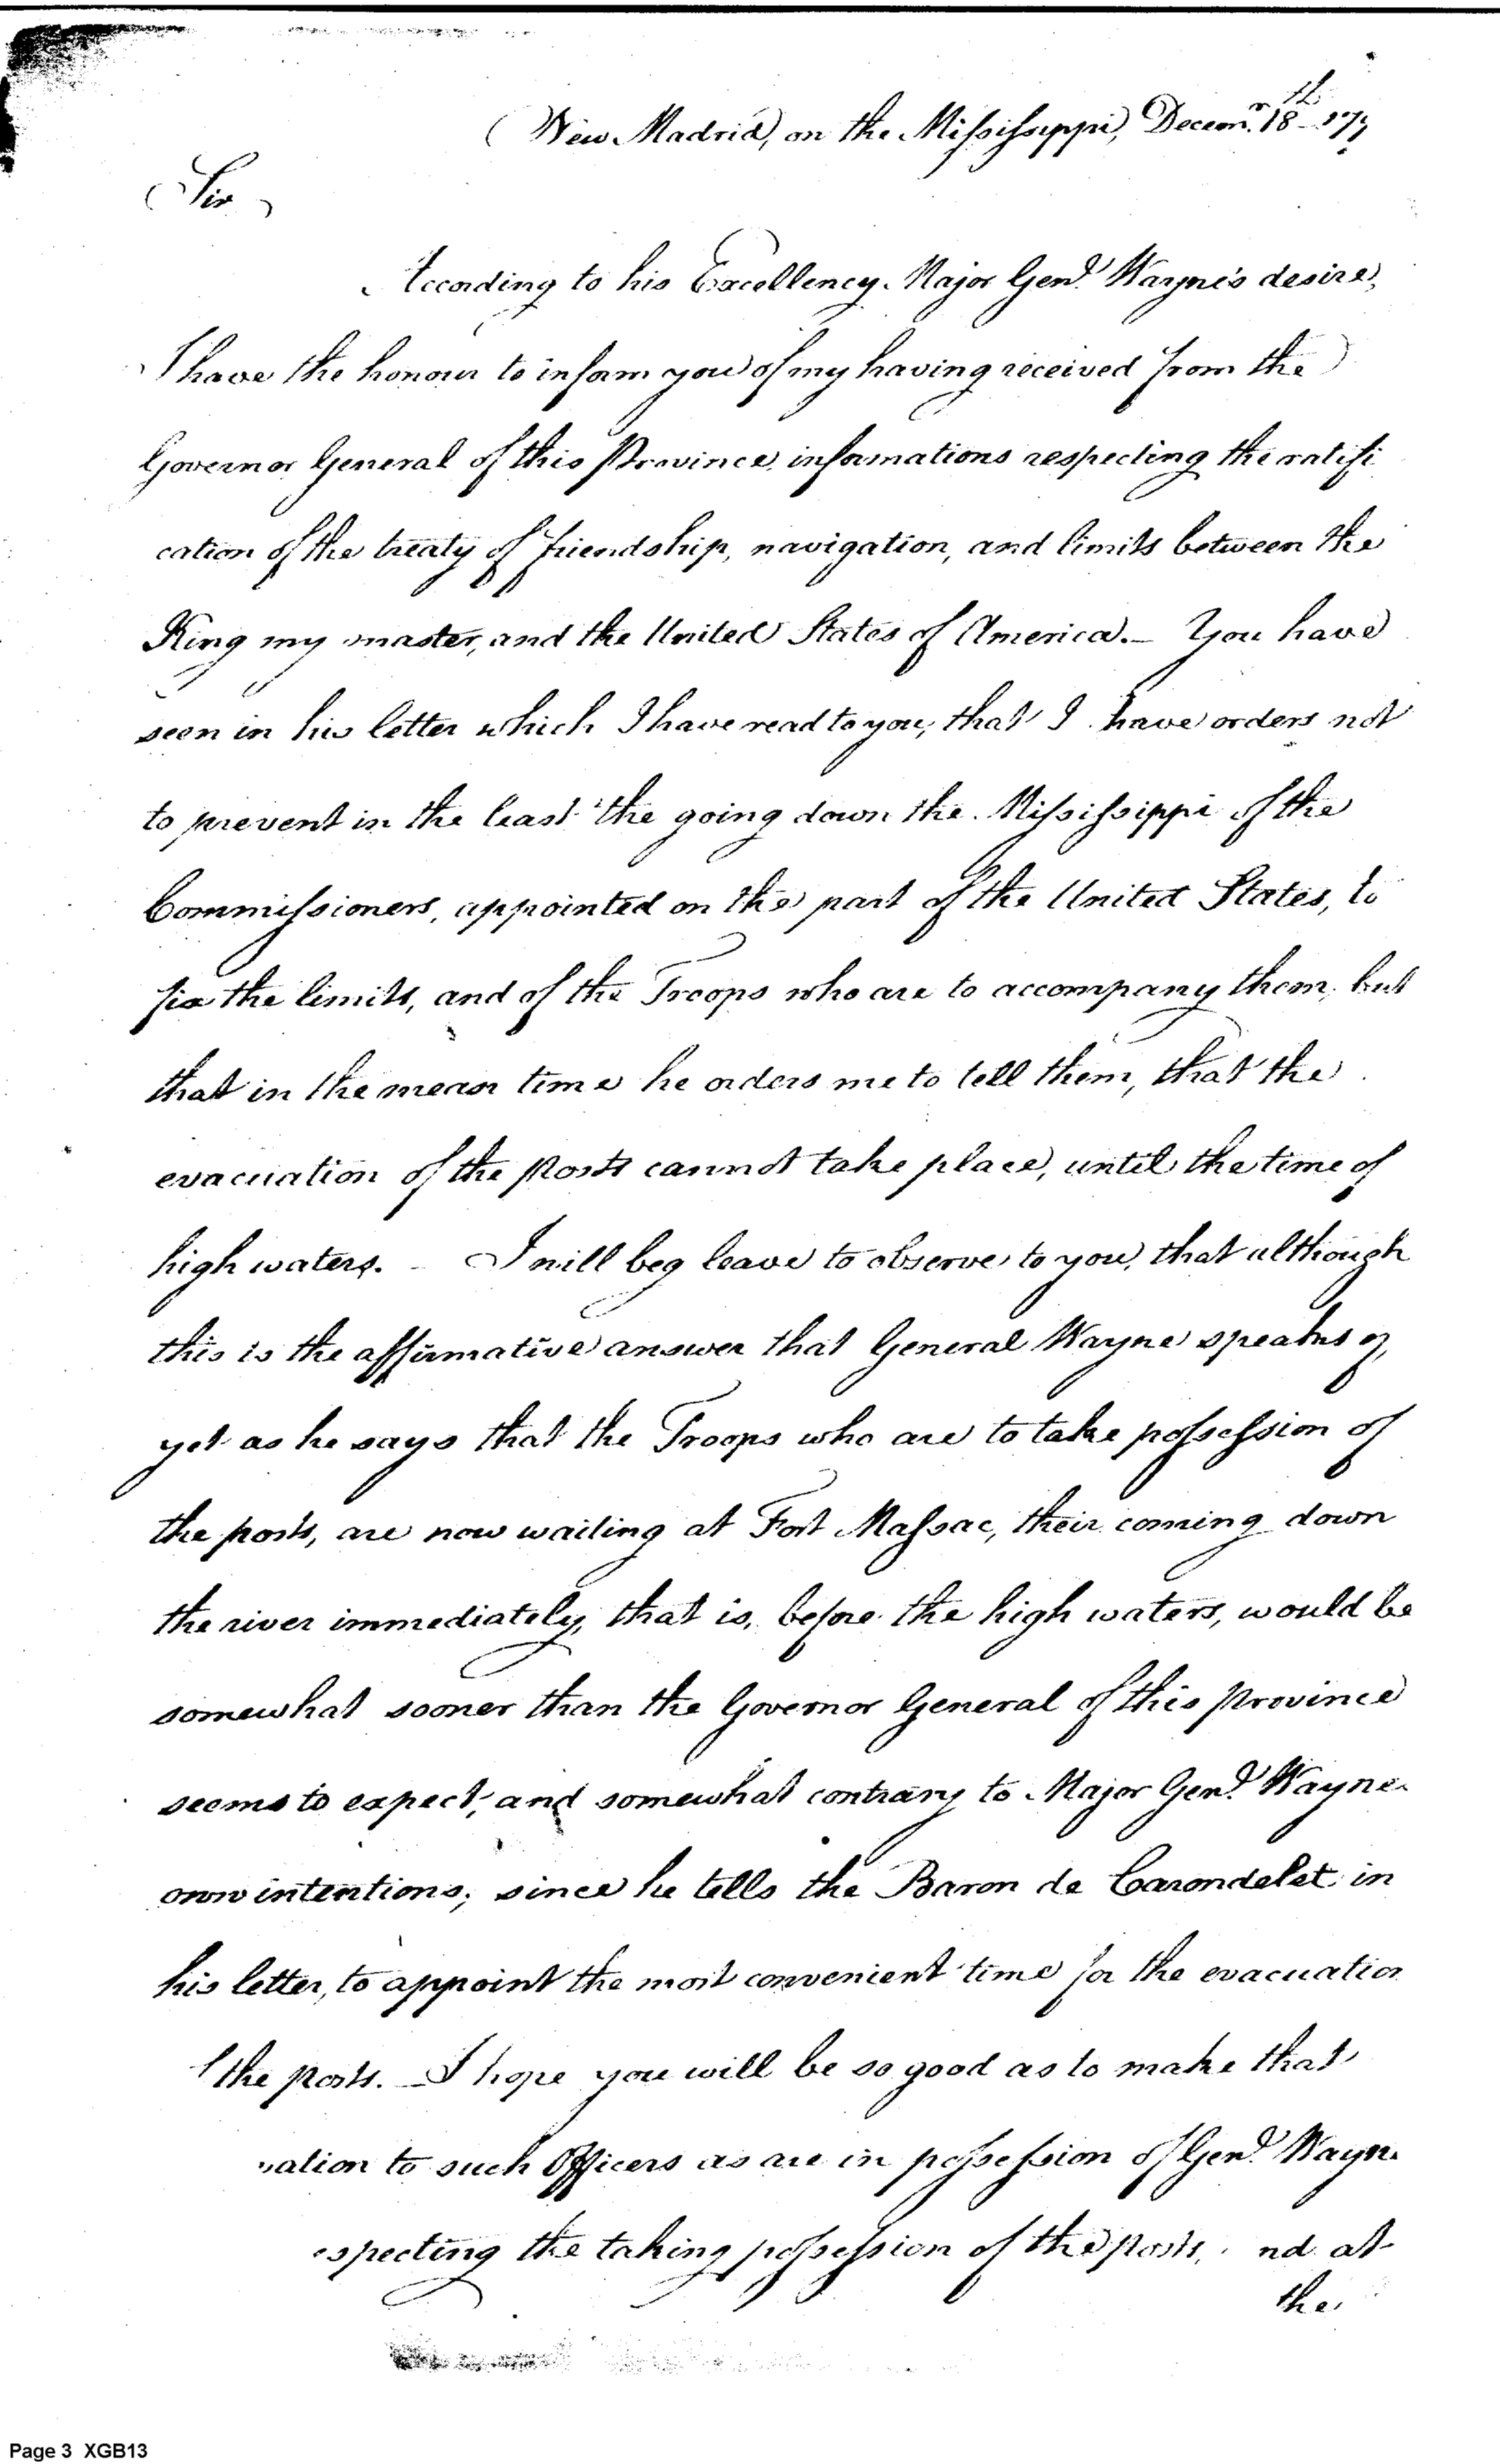 New Madrid, on the Mississippi, Decemr. 18th 179
Sir
According to his Excellency Major Genl. Wayne's desire,
I have the honour to inform you of my having received from the
Governor General of this Province informations respecting the ratifi
cation of the treaty of friendship, navigation, and limits between the
King my master, and the United States of America. – You have
seen in his letter which I have read to you, that I have orders not
to prevent in the least the going down the Mississippi of the
Commissioners, appointed on the part of the United States, to
fix the limits, and of the Troops who are to accompany them; but
that in the mean time he orders me to tell them, that the
evacuation of the Posts cannot take place, until the time of
high waters. – I will beg leave to observe to you, that although
this is the affirmative answer that General Wayne speaks of,
yet as he says that the Troops who are to take possession of
the posts, are now waiting at Fort Massac, their coming down
the river immediately, that is, before the high waters, would be
somewhat sooner than the Governor General of this Province
seems to expect, and somewhat contrary to Major Genl. Wayne
own intentions, since he tells the Baron de Carondelet in
his letter, to appoint the most convenient time for the evacuation
the Posts. – I hope you will be so good as to make that
vation to such Officers as are in possession of Genl. Wayne
especting the taking possession of the Posts, nd at
the
Page 3 XGB13